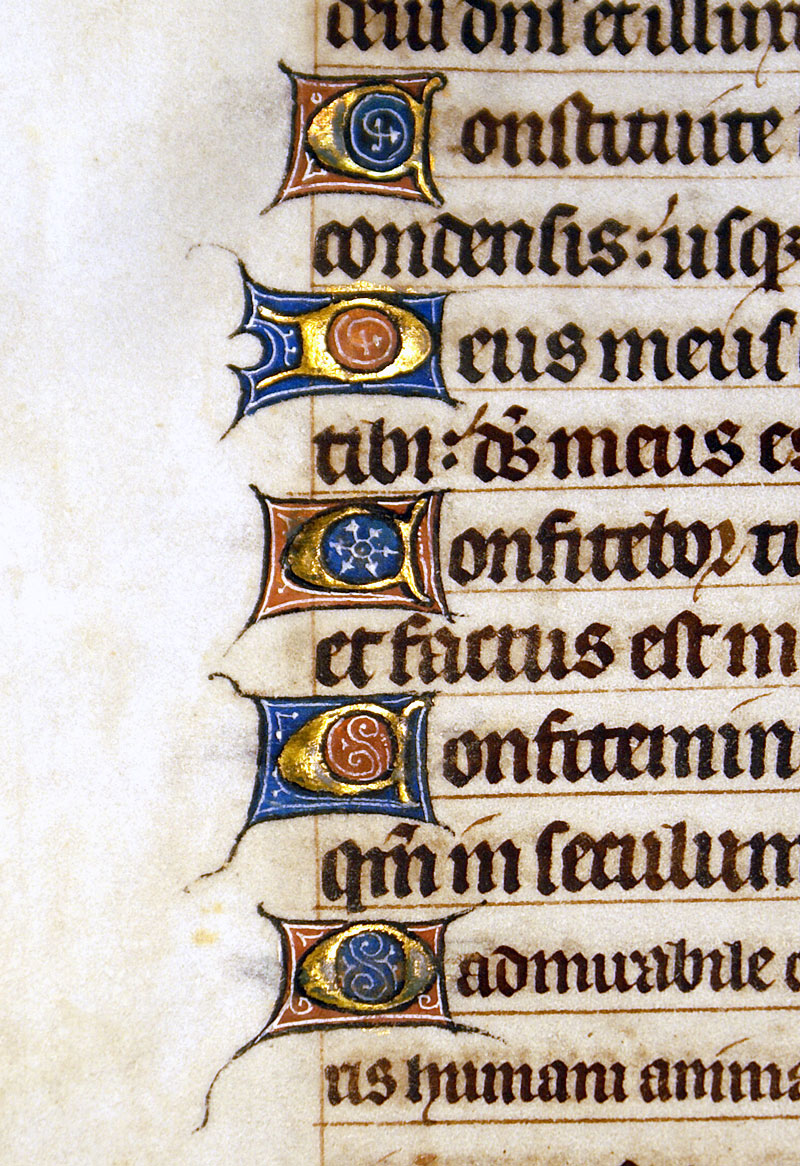 deus dns et illux
Constituite
condensis: usq
Deus meus
tibi: ds meus es
Confitebor ti
et factus est mi
Confitemini
qm in seculum
O admirabile c
ris humani anima